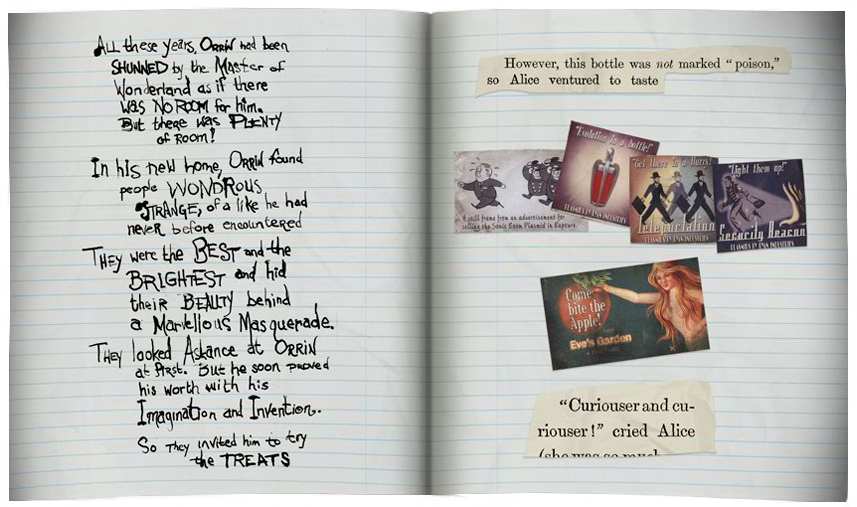 ALL these years, ORRIN had been
SHUNNED by the Master of
Wonderland as if there
was NO ROOM for him.
But there was PLENTY
of Room!
In his new home, ORRIN found
people WONDROUS
STRANGE, of a like he had
never before encountered
THEY were the BEST and the
BRIGHTEST and hid
their BEAUTY behind
a Marvellous Masquerade.
THEY looked Askance at ORRIN
at first. But he soon proved
his worth with his
Imagination and Invention.
So They invited him to try
the TREATS
However, this bottle was not marked “poison,”
so Alice ventured to taste
A still frame from an advertisement for
selling the Sonic Boom Plasmid in Rapture.
"Evolution in a bottle!"
PLASMIDS BY RYAN INDUSTRIES
"Get There in a Hurry!
Teleportation
PLASMIDS BY RYAN INDUSTRIES
"Light them up!"
Security Beacon
PLASMIDS BY RYAN INDUSTRIES
Come
bite the
Apple!
Eve's Garden
“Curiouser and cu-
riouser!” cried Alice
(she was so much